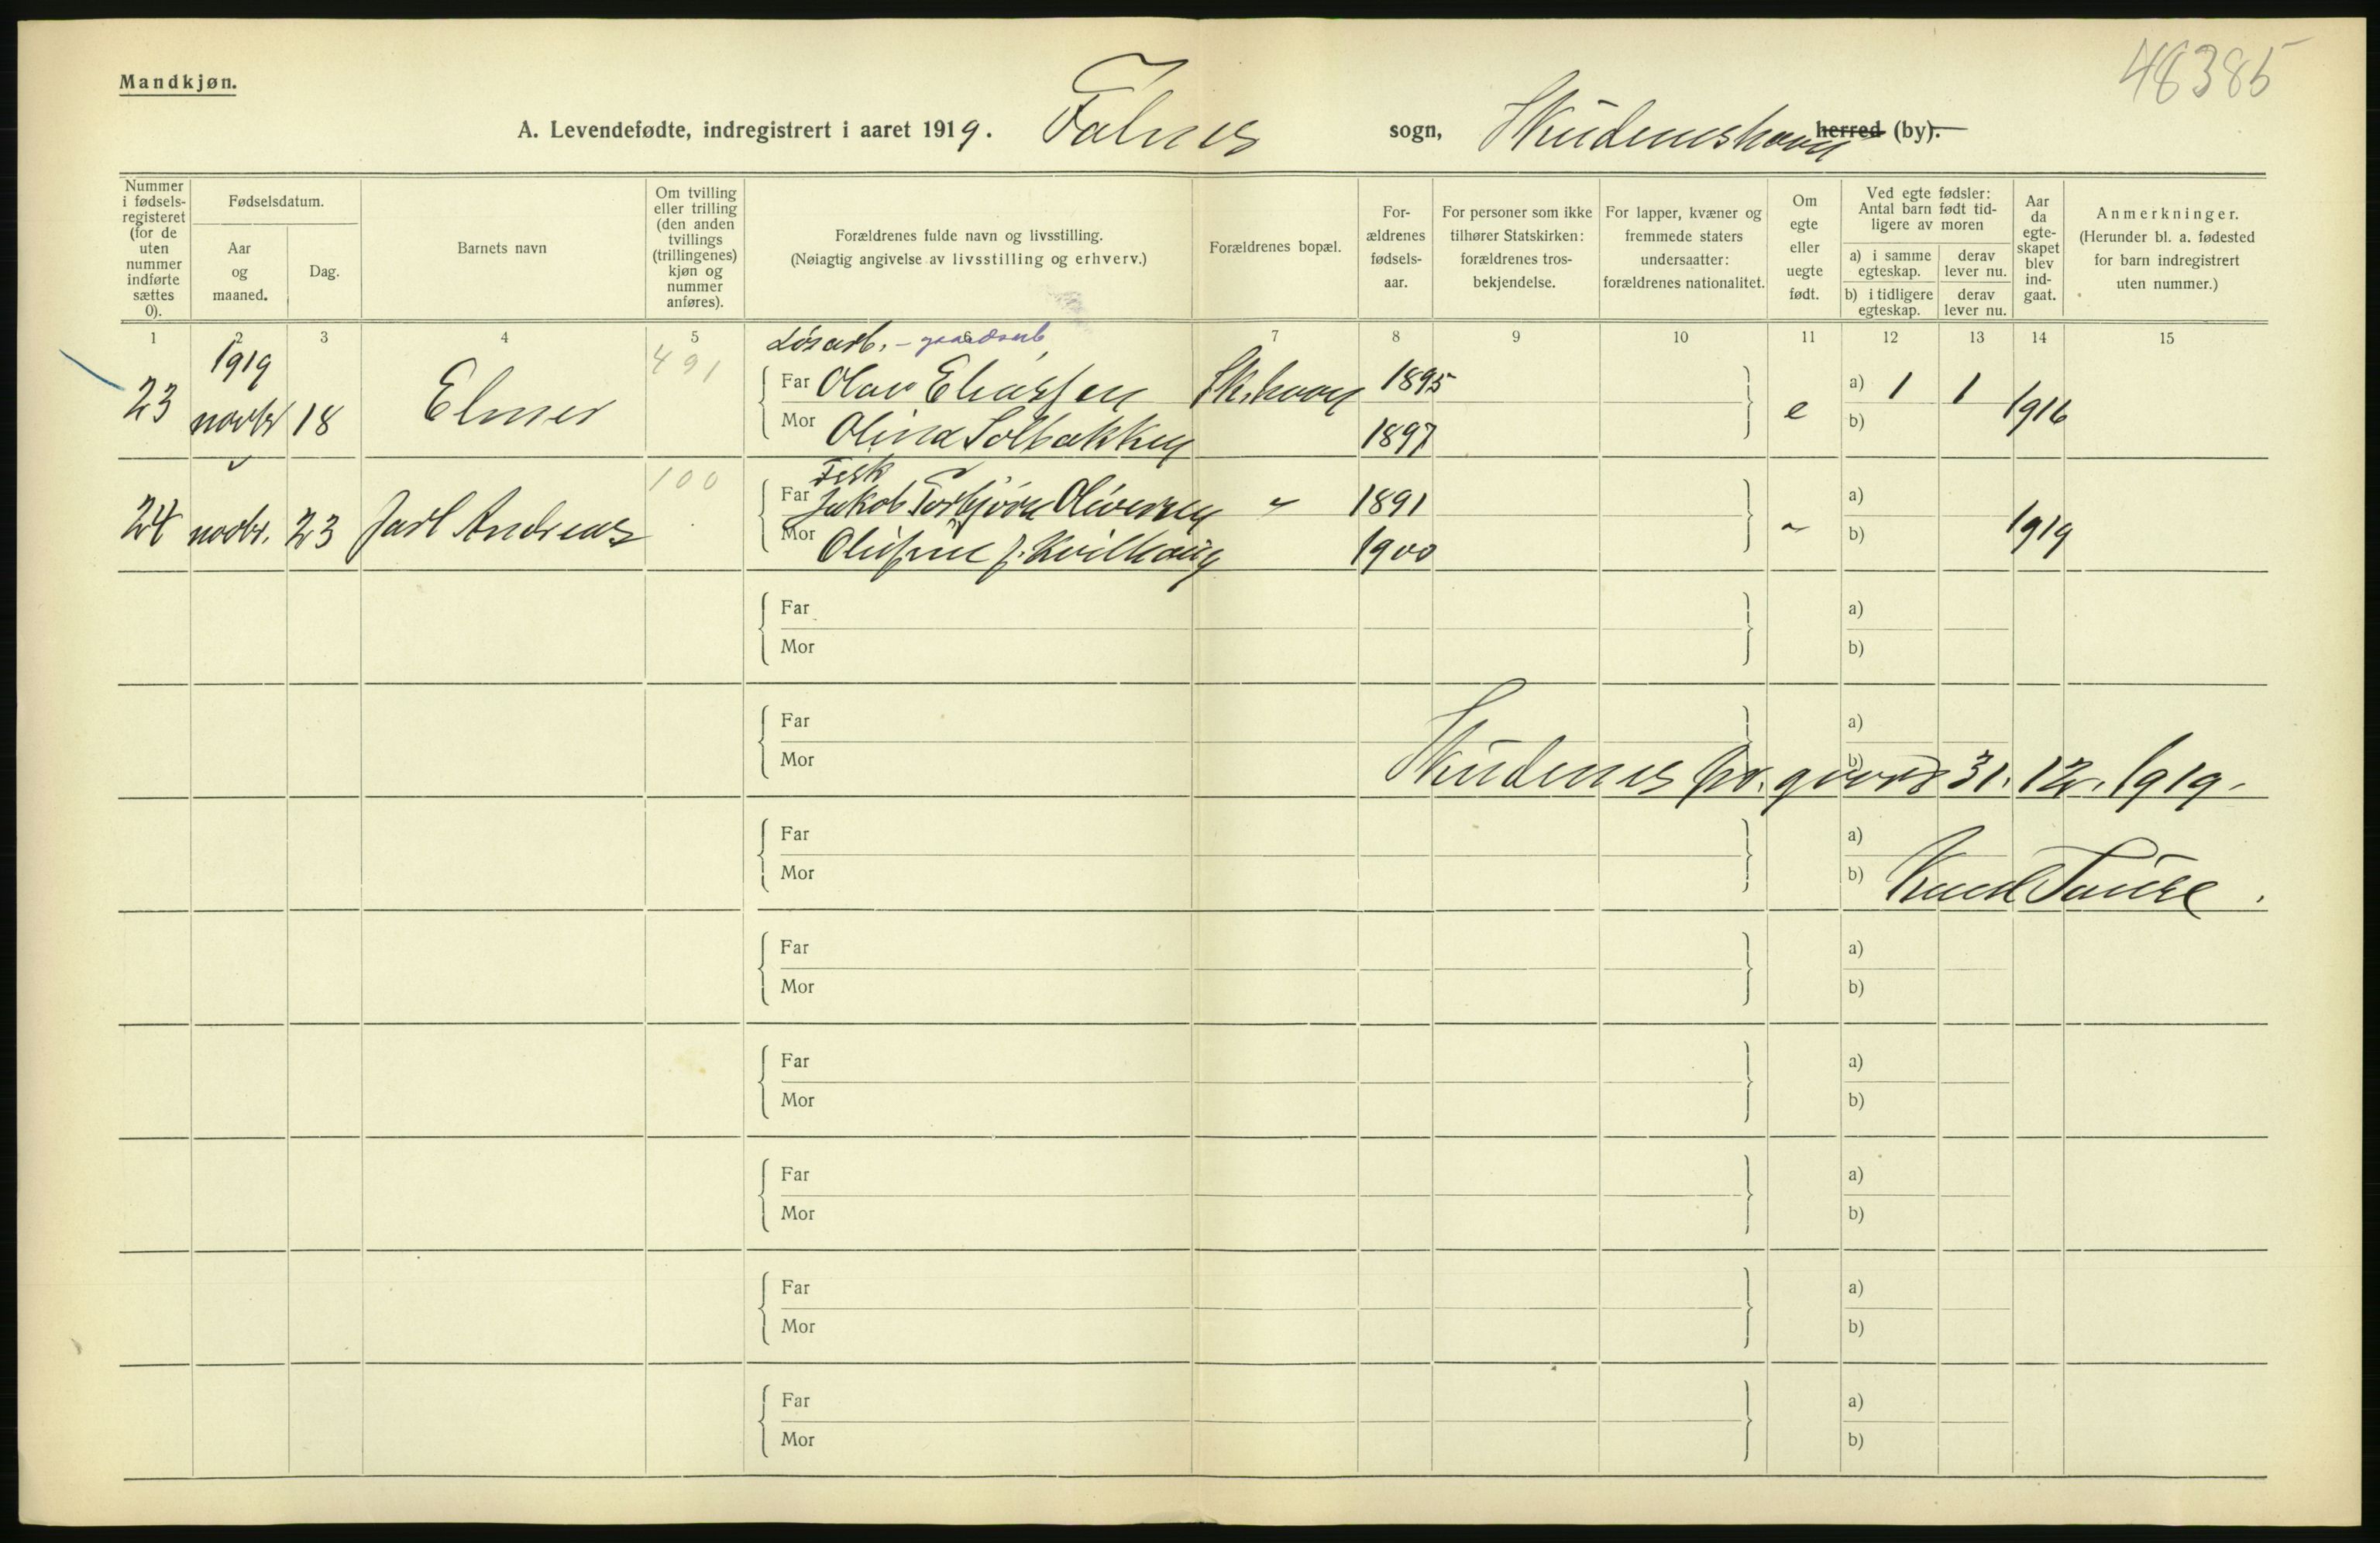 48385
Mandkjøn.
A. Levendefødte, indregistrert i aaret 1919. Falnes sogn, Skudeneshavn herred (by).
Nummer i fødsels-registeret (for de uten nummer indførte sættes 0).
Fødselsdatum.
Aar og maaned.
Dag.
Barnets navn
Om tvilling eller trilling (den anden tvillings (trillingenes) kjøn og nummer anføres).
Forældrenes fulde navn og livsstilling.
(Nøiagtig angivelse av livsstilling og erhverv.)
Forældrenes bopæl.
For-ældrenes fødsels-aar.
For personer som ikke tilhører Statskirken: forældrenes tros-bekjendelse.
For lapper, kvæner og fremmede staters undersaatter: forældrenes nationalitet.
Om egte eller uegte født.
Ved egte fødsler: Antal barn født tid-ligere av moren
a) i samme egteskap.
derav lever nu.
b) i tidligere egteskap.
derav lever nu.
Aar da egte-skapet blev ind-gaat.
Anmerkninger.
(Herunder bl. a. fødested for barn indregistrert uten nummer.)
1 2 3 4 5 6 7 8 9 10 11 12 13 14 15
1919 491 Løsarb. - gaardsarb
23 novbr 18 Elmer Far Olav Eliassen Sk.havn 1895 e a) 1 1 1916
Mor Olina Solbakken 1897 b)
100 Fisk
24 novbr. 23 Jarl Andreas Far Jakob Torbjørn Oliversen " 1891 " a) 1919
Mor Olufine J. Kvilhaug 1900 b)
Far a)
Mor b)
Far a)
Mor b)
Skudenes pr.gaard 31. 12. 1919.
Far a)
Mor b) Knud
Far a)
Mor b)
Far a)
Mor b)
Far a)
Mor b)
Far a)
Mor b)
Far a)
Mor b)